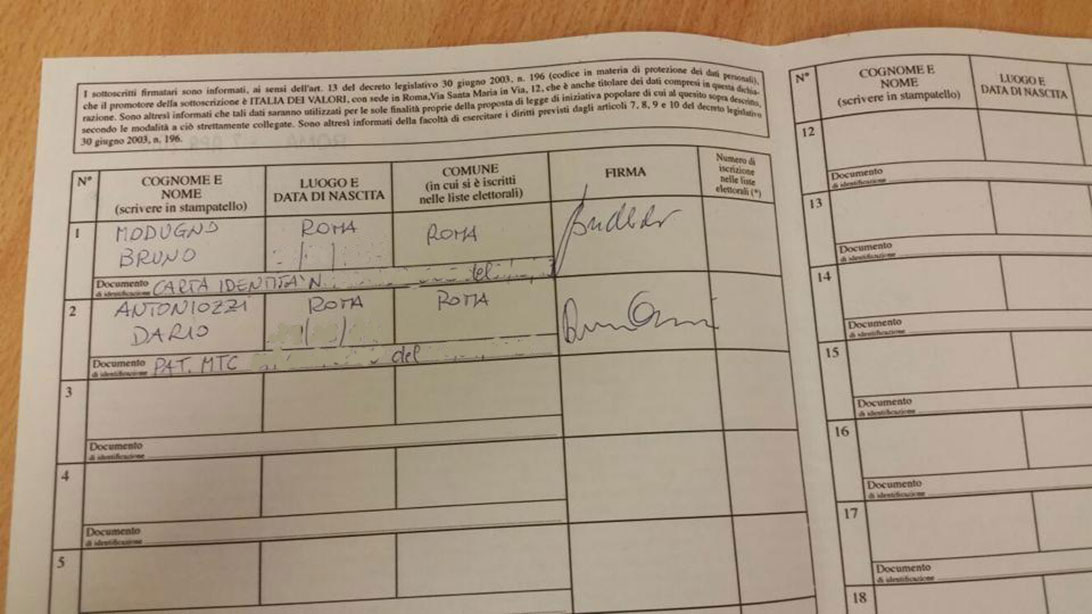 I sottoscritti firmatari sono informati, ai sensi dell'art. 13 del decreto legislativo 30 giugno 2003, n. 196 (codice in materia di protezione dei dati personali),
che il promotore della sottoscrizione è ITALIA DEI VALORI, con sede in Roma, Via Santa Maria in Via, 12, che è anche titolare dei dati compresi in questa dichia-
razione. Sono altresì informati che tali dati saranno utilizzati per le sole finalità proprie della proposta di legge di iniziativa popolare di cui al quesito sopra descritto,
secondo le modalità a ciò strettamente collegate. Sono altresì informati della facoltà di esercitare i diritti previsti dagli articoli 7, 8, 9 e 10 del decreto legislativo
30 giugno 2003, n. 196.
N° COGNOME E NOME (scrivere in stampatello) LUOGO E DATA DI NASCITA COMUNE (in cui si è iscritti nelle liste elettorali) FIRMA Numero di iscrizione nelle liste elettorali (*)
1 MODUGNO ROMA ROMA
BRUNO
Documento di identificazione CARTA IDENTITA' N. del
2 ANTONIOZZI ROMA ROMA
DARIO
Documento di identificazione PAT. MTC del
3
Documento di identificazione
4
Documento di identificazione
5
N° COGNOME E NOME (scrivere in stampatello) LUOGO E DATA DI NASCITA
12
Documento di identificazione
13
Documento di identificazione
14
Documento di identificazione
15
Documento di identificazione
16
Documento di identificazione
17
Documento di identificazione
18